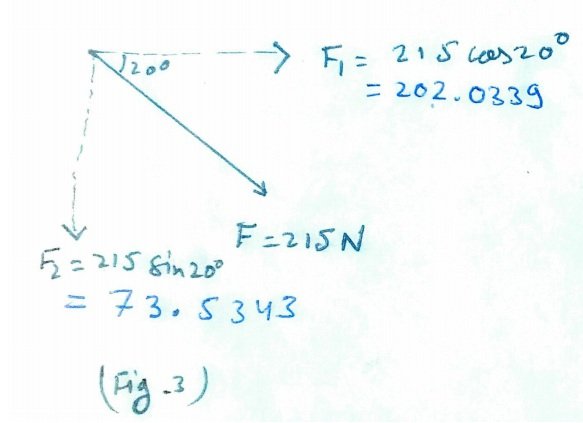 20°
F₁ = 215 cos20°
= 202.0339
F = 215 N
F₂ = 215 sin20°
= 73.5343
(Fig.3)